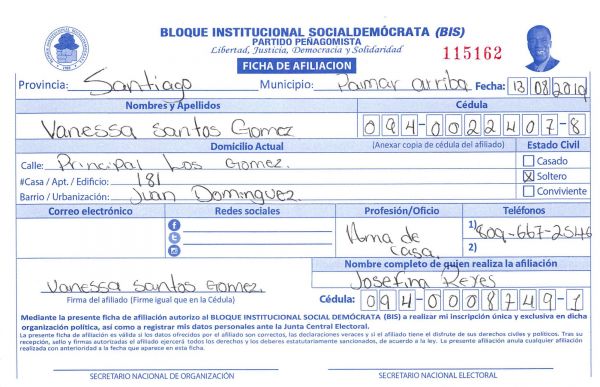 BLOQUE INSTITUCIONAL SOCIALDEMÓCRATA (BIS)
PARTIDO PEÑAGOMISTA
Libertad, Justicia, Democracia y Solidaridad
115162
FICHA DE AFILIACION
Provincia: Santiago Municipio: Palmar arriba Fecha: 13/08/2019
Nombres y Apellidos Cédula
Vanessa Santos Gomez 094-0022407-8
Domicilio Actual (Anexar copia de cédula del afiliado) Estado Civil
Calle: Principal Los Gomez. Casado
#Casa / Apt. / Edificio: 181 Soltero
Barrio / Urbanización: Juan Dominguez. Conviviente
Correo electrónico Redes sociales Profesión/Oficio Teléfonos
Ama de casa. 1) 809-667-2546
2)
Nombre completo de quien realiza la afiliación
Vanessa Santos Gomez. Josefina Reyes
Firma del afiliado (Firme igual que en la Cédula) Cédula: 094-0008749-1
Mediante la presente ficha de afiliación autorizo al BLOQUE INSTITUCIONAL SOCIAL DEMÓCRATA (BIS) a realizar mi inscripción única y exclusiva en dicha
organización política, así como a registrar mis datos personales ante la Junta Central Electoral.
La presente ficha de afiliación es válida si los datos ofrecidos por el afiliado son correctos, las declaraciones veraces y si el afiliado tiene el disfrute de sus derechos civiles y políticos. Tras su
recepción, sello y firmas autorizadas el afiliado ejercerá todos los derechos y los deberes estatutariamente sancionados, de acuerdo a la ley. La presente afiliación anula cualquier afiliación
realizada con anterioridad a la fecha que aparece en esta ficha.
SECRETARIO NACIONAL DE ORGANIZACIÓN SECRETARIO NACIONAL ELECTORAL